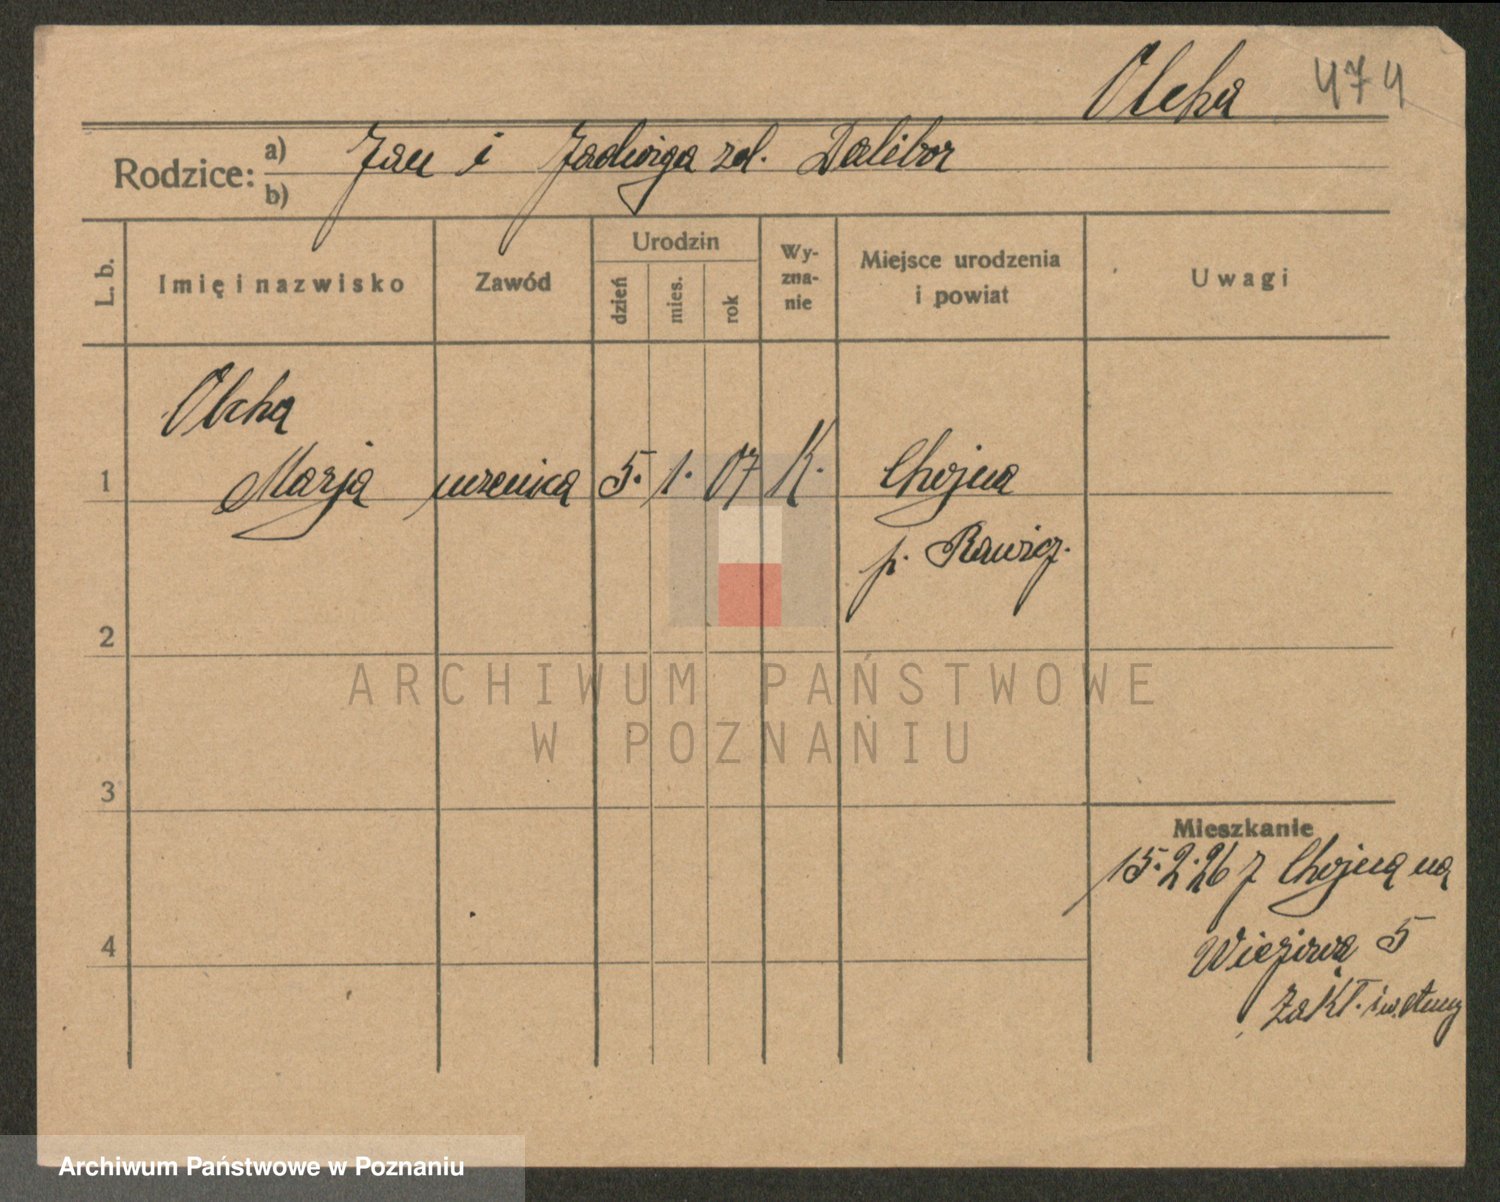 Olcha 474
Rodzice: a) Jan i Jadwiga zd. Dalibor
b)
L. b.
Imię i nazwisko
Zawód
Urodzin
dzień
mies.
rok
Wy-
zna-
nie
Miejsce urodzenia
i powiat
Uwagi
Olcha
1 Marja uczenica 5. 1. 07 K. Chojna
p. Rawicz.
2
ARCHIWUM PAŃSTWOWE
W POZNANIU
3
Mieszkanie
15.2.26 z Chojna na
4
Wieżowa 5
Zakł.
Archiwum Państwowe w Poznaniu